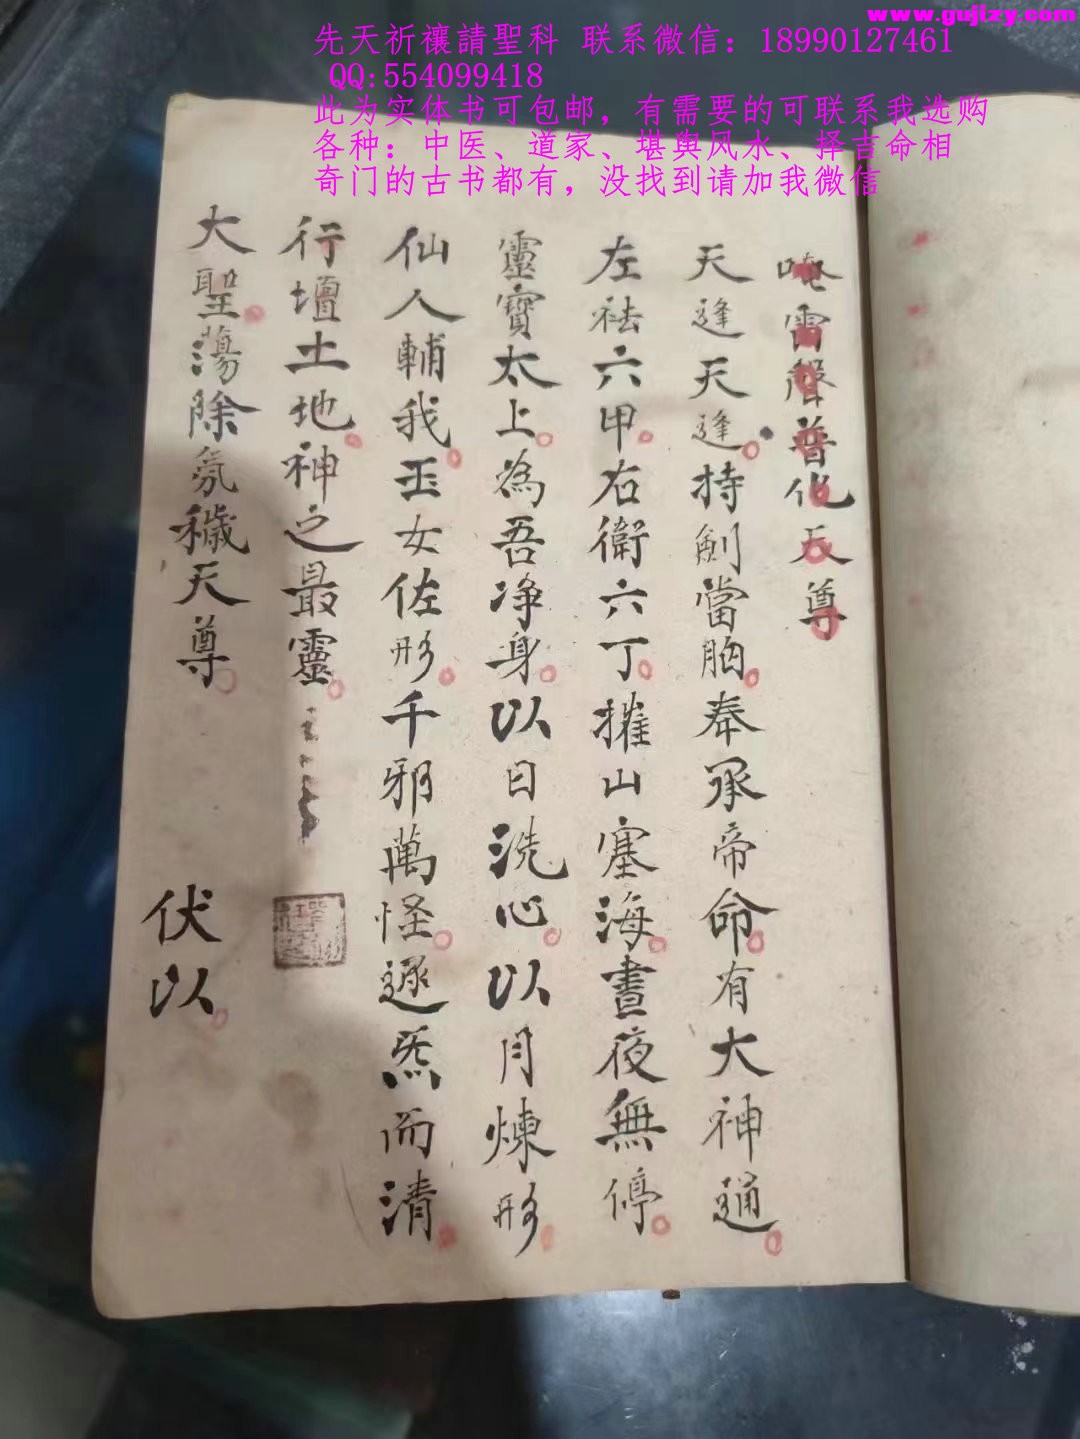 www.gujizy.com
先天祈禳請聖科 联系微信：18990127461
QQ:554099418
此为实体书可包邮，有需要的可联系我选购
各种：中医、道家、堪舆风水、择吉命相
奇门的古书都有，没找到请加我微信
唵雷聲普化天尊
天逢天逢持劍當胸奉承帝命有大神通
左祛六甲右衛六丁摧山塞海晝夜無停
靈寶太上為吾净身以日洗心以月煉形
仙人輔我玉女佐形千邪萬怪逐炁而清
行壇土地神之最靈
大聖蕩除氛穢天尊 伏以